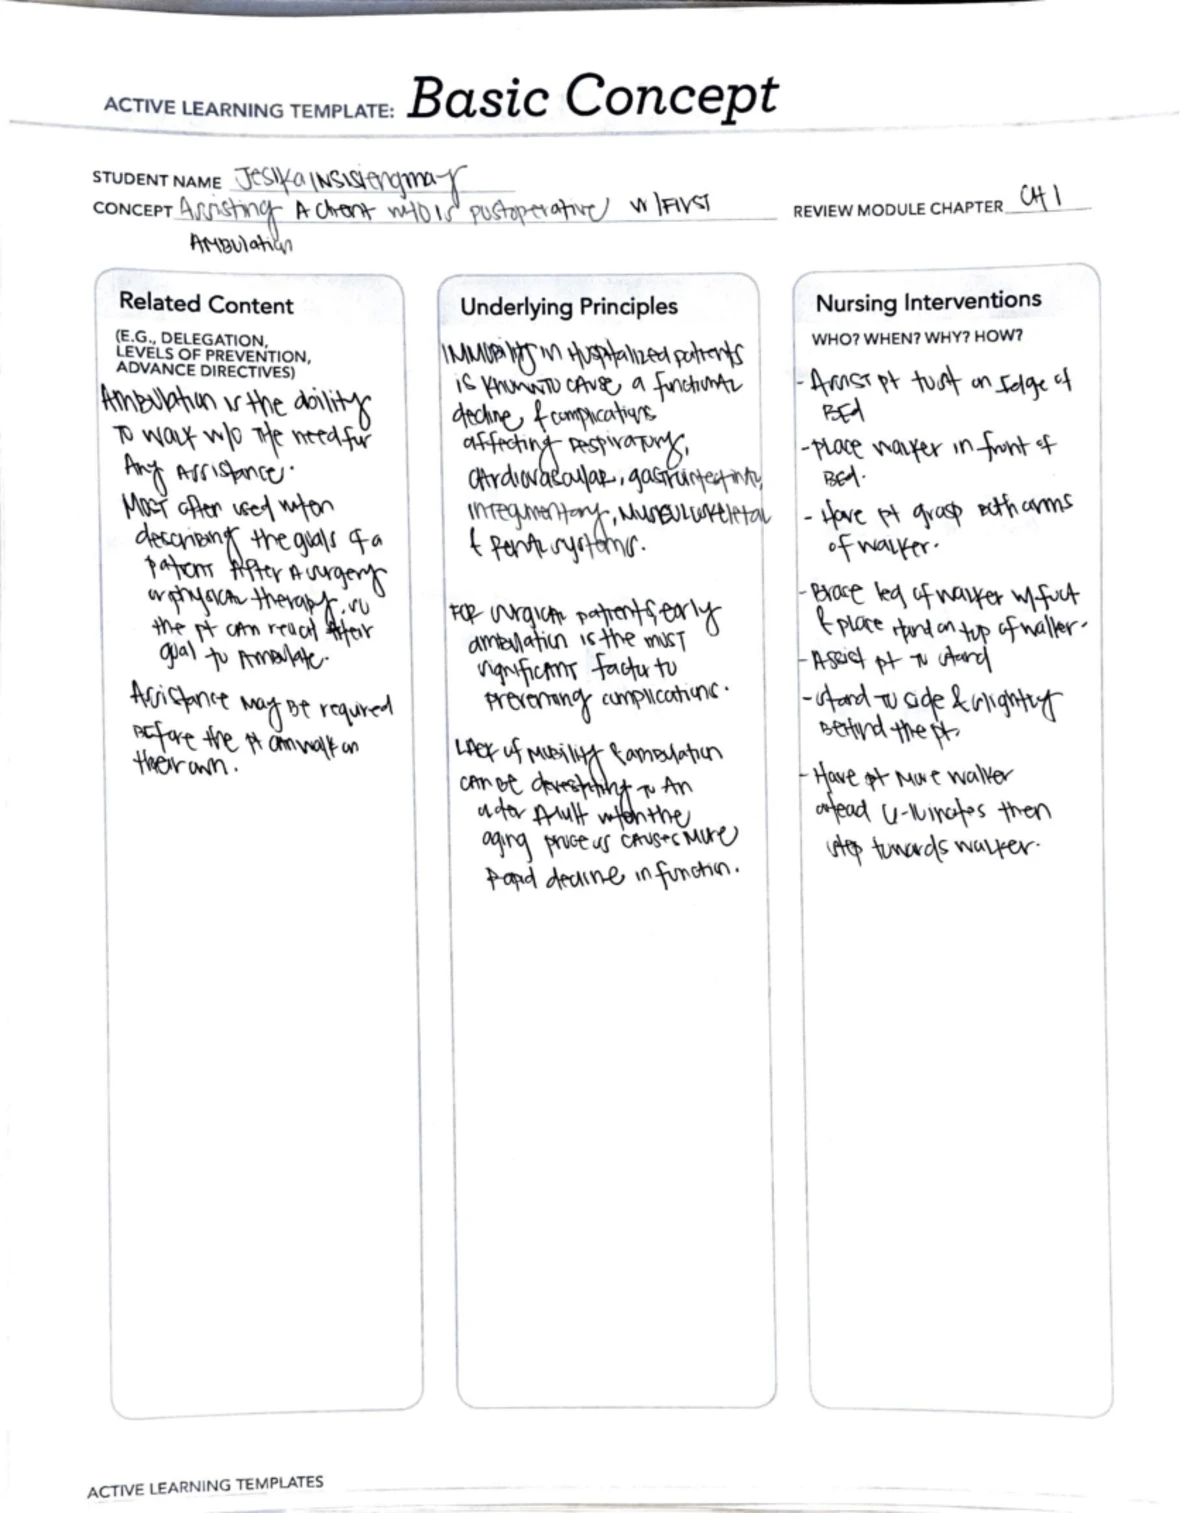 ACTIVE LEARNING TEMPLATE: Basic Concept
STUDENT NAME Jesika Insisiengmay
CONCEPT Assisting A Client who is postoperative w/ FIRST
AMBulation
REVIEW MODULE CHAPTER CH 1
Related Content
(E.G., DELEGATION,
LEVELS OF PREVENTION,
ADVANCE DIRECTIVES)
AMBulation is the ability
TO walk w/o the need for
Any Assistance.
MOST often used when
describing the goals of a
patient After A surgery
or physical therapy, so
the pt can reach their
goal to Ambulate.
Assistance may BE required
BEfore the pt can walk on
their own.
Underlying Principles
IMMobility in Hospitalized patients
is known TO cAuse a functional
decline & complications
affecting Respiratory,
cArdiovascular, gastrointestinal,
integumentary, Musculoskeletal
& renal systems.
FOR surgical patients, early
ambulation is the most
significant factor to
preventing complications.
LAck of Mobility & ambulation
CAN BE devastating to An
older Adult when the
aging process cAuses More
Rapid decline in function.
Nursing Interventions
WHO? WHEN? WHY? HOW?
- Assist pt to sit on Edge of
BEd
- place walker in front of
BEd.
- Have pt grasp Both arms
of walker.
- Brace leg of walker w/ foot
& place Hand on top of walker.
- Assist pt to stand
- stand TO side & slightly
BEhind the pt.
- Have pt Move walker
ahead 6-10 inches then
step towards walker.
ACTIVE LEARNING TEMPLATES